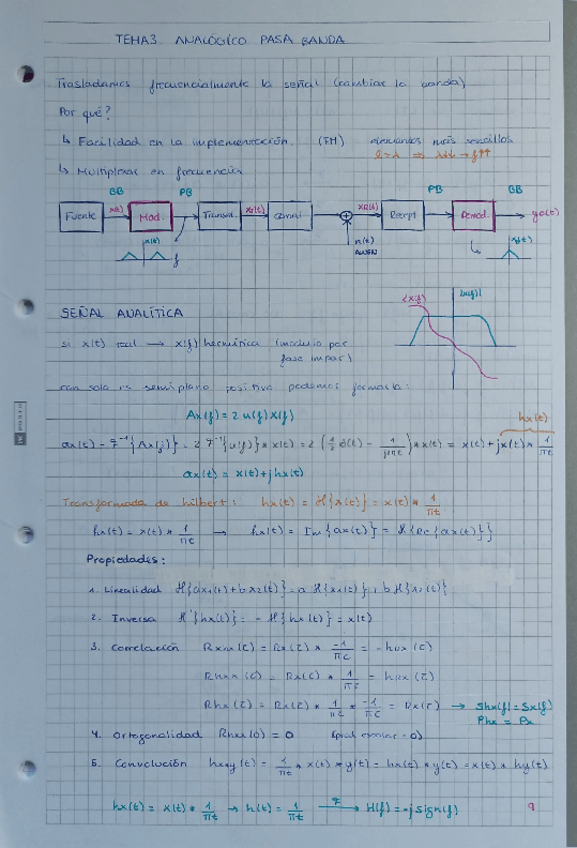 TEMA3 ANALÓGICO PASA BANDA
Trasladamos frecuencialmente la señal (cambiar la banda)
Por qué?
↳ Facilidad en la implementación. (FM) elementos más sencillos
l=λ ⇒ λ↓↓ → f↑↑
↳ Multiplexar en frecuencia
BB PB PB BB
Fuente x(t) Mod. Transm. XT(t) Canal ⊕ XR(t) Recept Demod. yD(t)
x(t) f n(t) AWGN
SEÑAL ANALÍTICA
∠X(f) |X(f)|
si x(t) real → X(f) hermítica (modulo par
fase impar)
con solo el semiplano positivo podemos formarla:
Ax(f) = 2 u(f) X(f)
hx(t)
ax(t) = F⁻¹{Ax(f)} = 2 F⁻¹{u(f)} * x(t) = 2 (1/2 δ(t) - 1/j2πt) * x(t) = x(t) + jx(t) * 1/πt
ax(t) = x(t) + jhx(t)
Transformada de hilbert: hx(t) = H{x(t)} = x(t) * 1/πt
hx(t) = x(t) * 1/πt → hx(t) = Im{ax(t)} = H{Re{ax(t)}}
Propiedades:
1. Linealidad H{ax1(t) + bx2(t)} = a H{x1(t)} + b H{x2(t)}
2. Inversa H⁻¹{hx(t)} = - H{hx(t)} = x(t)
3. Correlación Rxhx(τ) = Rx(τ) * -1/πτ = -hRx(τ)
Rhxx(τ) = Rx(τ) * 1/πτ = hRx(τ)
Rhx(τ) = Rx(τ) * 1/πτ * -1/πτ = Rx(τ) → Shx(f) = Sx(f)
Phx = Px
4. Ortogonalidad Rhxx(0) = 0
5. Convolución hx*y(t) = 1/πt * x(t) * y(t) = hx(t) * y(t) = x(t) * hy(t)
hx(t) = x(t) * 1/πt → h(t) = 1/πt F→ H(f) = -j sign(f)
9